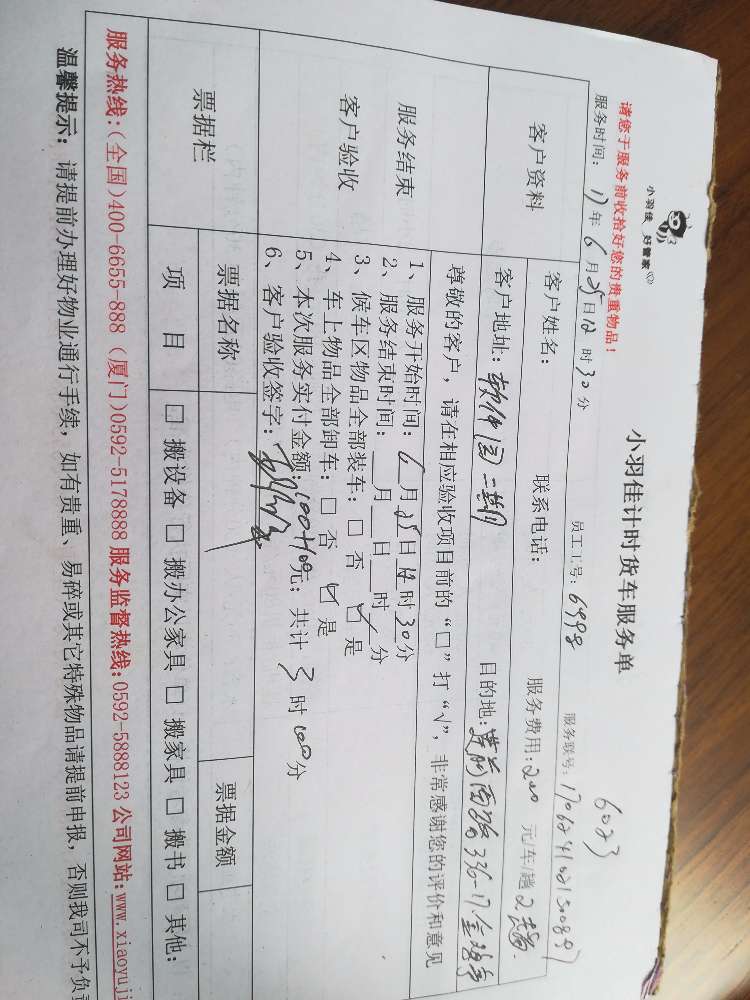 小羽佳 好管家
请您于服务前收拾好您的贵重物品!
小羽佳计时货车服务单
6023
服务时间: 17年 6月 25日 12时 30分 员工工号: 6998 服务联号:
客户资料
客户姓名: 联系电话: 服务费用: 200 元/车/趟 2
客户地址: 软件园二期 目的地: 336-17
服务结束
客户验收
尊敬的客户,请在相应验收项目前的“□”打“√”,非常感谢您的评价和意见
1、服务开始时间: 6月25日12时30分
2、服务结束时间: 月 日 时 分
3、候车区物品全部装车: □ 否 □ 是
4、车上物品全部卸车: □ 否 □ 是
5、本次服务实付金额: 元; 共计 3时00分
6、客户验收签字:
票据栏 票据名称 票据金额
项 目 □ 搬设备 □ 搬办公家具 □ 搬家具 □ 搬书 □ 其他:
服务热线:(全国)400-6655-888 (厦门)0592-5178888 服务监督热线:0592-5888123 公司网站:www.xiaoyuji
温馨提示: 请提前办理好物业通行手续,如有贵重、易碎或其它特殊物品请提前申报,否则我司不予负